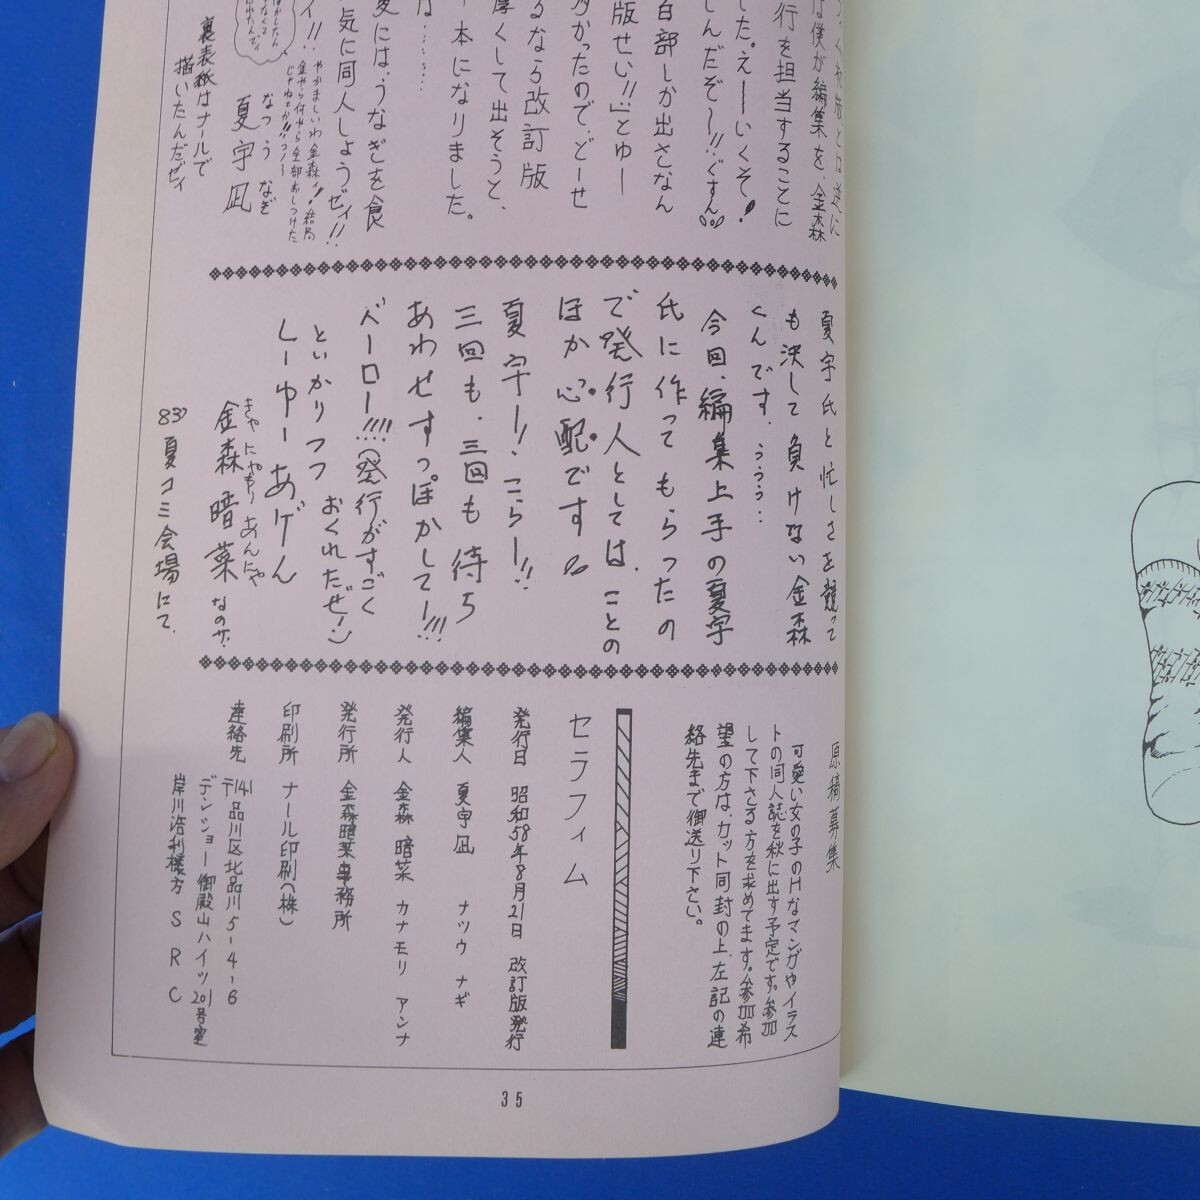 行を担当することに
した。えーーいくぞ!
しんだぞ〜!!ぐすん
百部しか出さなん
版せい!!」とゆー
多かったので、どーせ
るなら改訂版
厚くして出そうと、
本になりました。
は……
夏には、うなぎを食
気に同人しようぜィ!!
なつう なぎ
夏宇凪
裏表紙はナールで
描いたんだゼィ
夏宇氏と忙しさを競って
も決して負けない金森
くんです。ううう‥
今回、編集上手の夏宇
氏に作ってもらったの
で発行人としては、ことの
ほか心配です
夏宇ー!こらー!!
三回も、三回も待ち
あわせすっぽかして!!!
ベーロー!!!!(発行がすごく
おくれただぜー)
といかりつつ
しーゆーあげん
きゃにゃもりあんにゃ
金森暗菜なのサ.
83'夏コミ会場にて.
原稿募集
可愛い女の子のHなマンガやイラス
トの同人誌を秋に出す予定です。参加
して下さる方を求めてます。参加希
望の方は、カット同封の上、左記の連
絡先まで御送り下さい。
セラフィム
発行日 昭和58年8月21日 改訂版発行
編集人 夏宇凪 ナツウ ナギ
発行人 金森暗菜 カナモリ アンナ
発行所 金森暗菜事務所
印刷所 ナール印刷(株)
連絡先 〒141 品川区北品川5-4-6
デンショー御殿山ハイツ201号室
岸川浩利様方 SRC
35